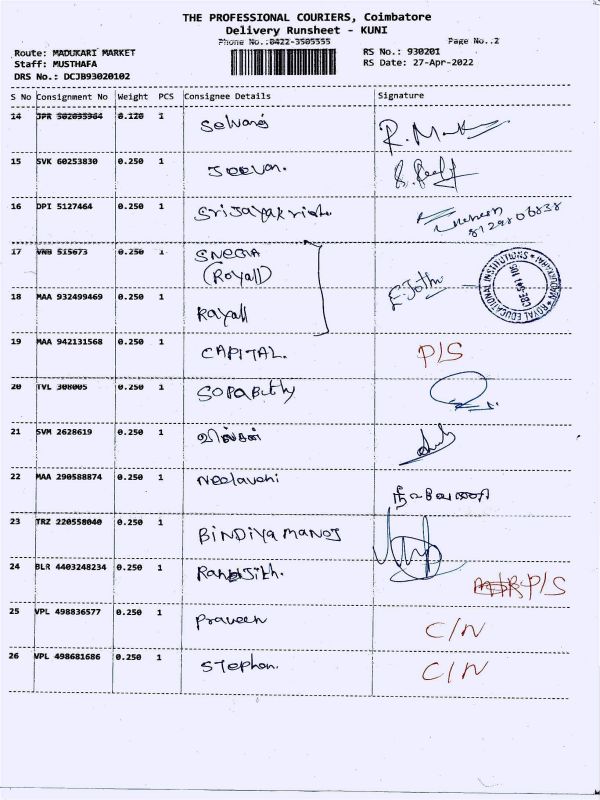 THE PROFESSIONAL COURIERS, Coimbatore
Delivery Runsheet - KUNI
Phone No.:0422-3505555
Page No.:2
Route: MADUKARI MARKET
RS No.: 930201
Staff: MUSTHAFA
RS Date: 27-Apr-2022
DRS No.: DCJB93020102
S No Consignment No Weight PCS Consignee Details Signature
14 JPR 302035964 0.120 1 Selvaraj
15 SVK 60253830 0.250 1 Jeevan.
16 DPI 5127464 0.250 1 8129806838
17 VNB 515673 0.250 1 SNEGA
(Royall)
18 MAA 932499469 0.250 1 Rayall E.Jothi
ROYAL EDUCATIONAL INSTITUTIONS
19 MAA 942131568 0.250 1 CAPITAL. P/S
20 TVL 308005 0.250 1
21 SVM 2628619 0.250 1
22 MAA 290588874 0.250 1 Neelaveni நீலவேணி
23 TRZ 220558040 0.250 1 BINDIYA MANOJ
24 BLR 4403248234 0.250 1 P/S
25 VPL 498836577 0.250 1 Praveen C/N
26 VPL 498681686 0.250 1 Stephen. C/N